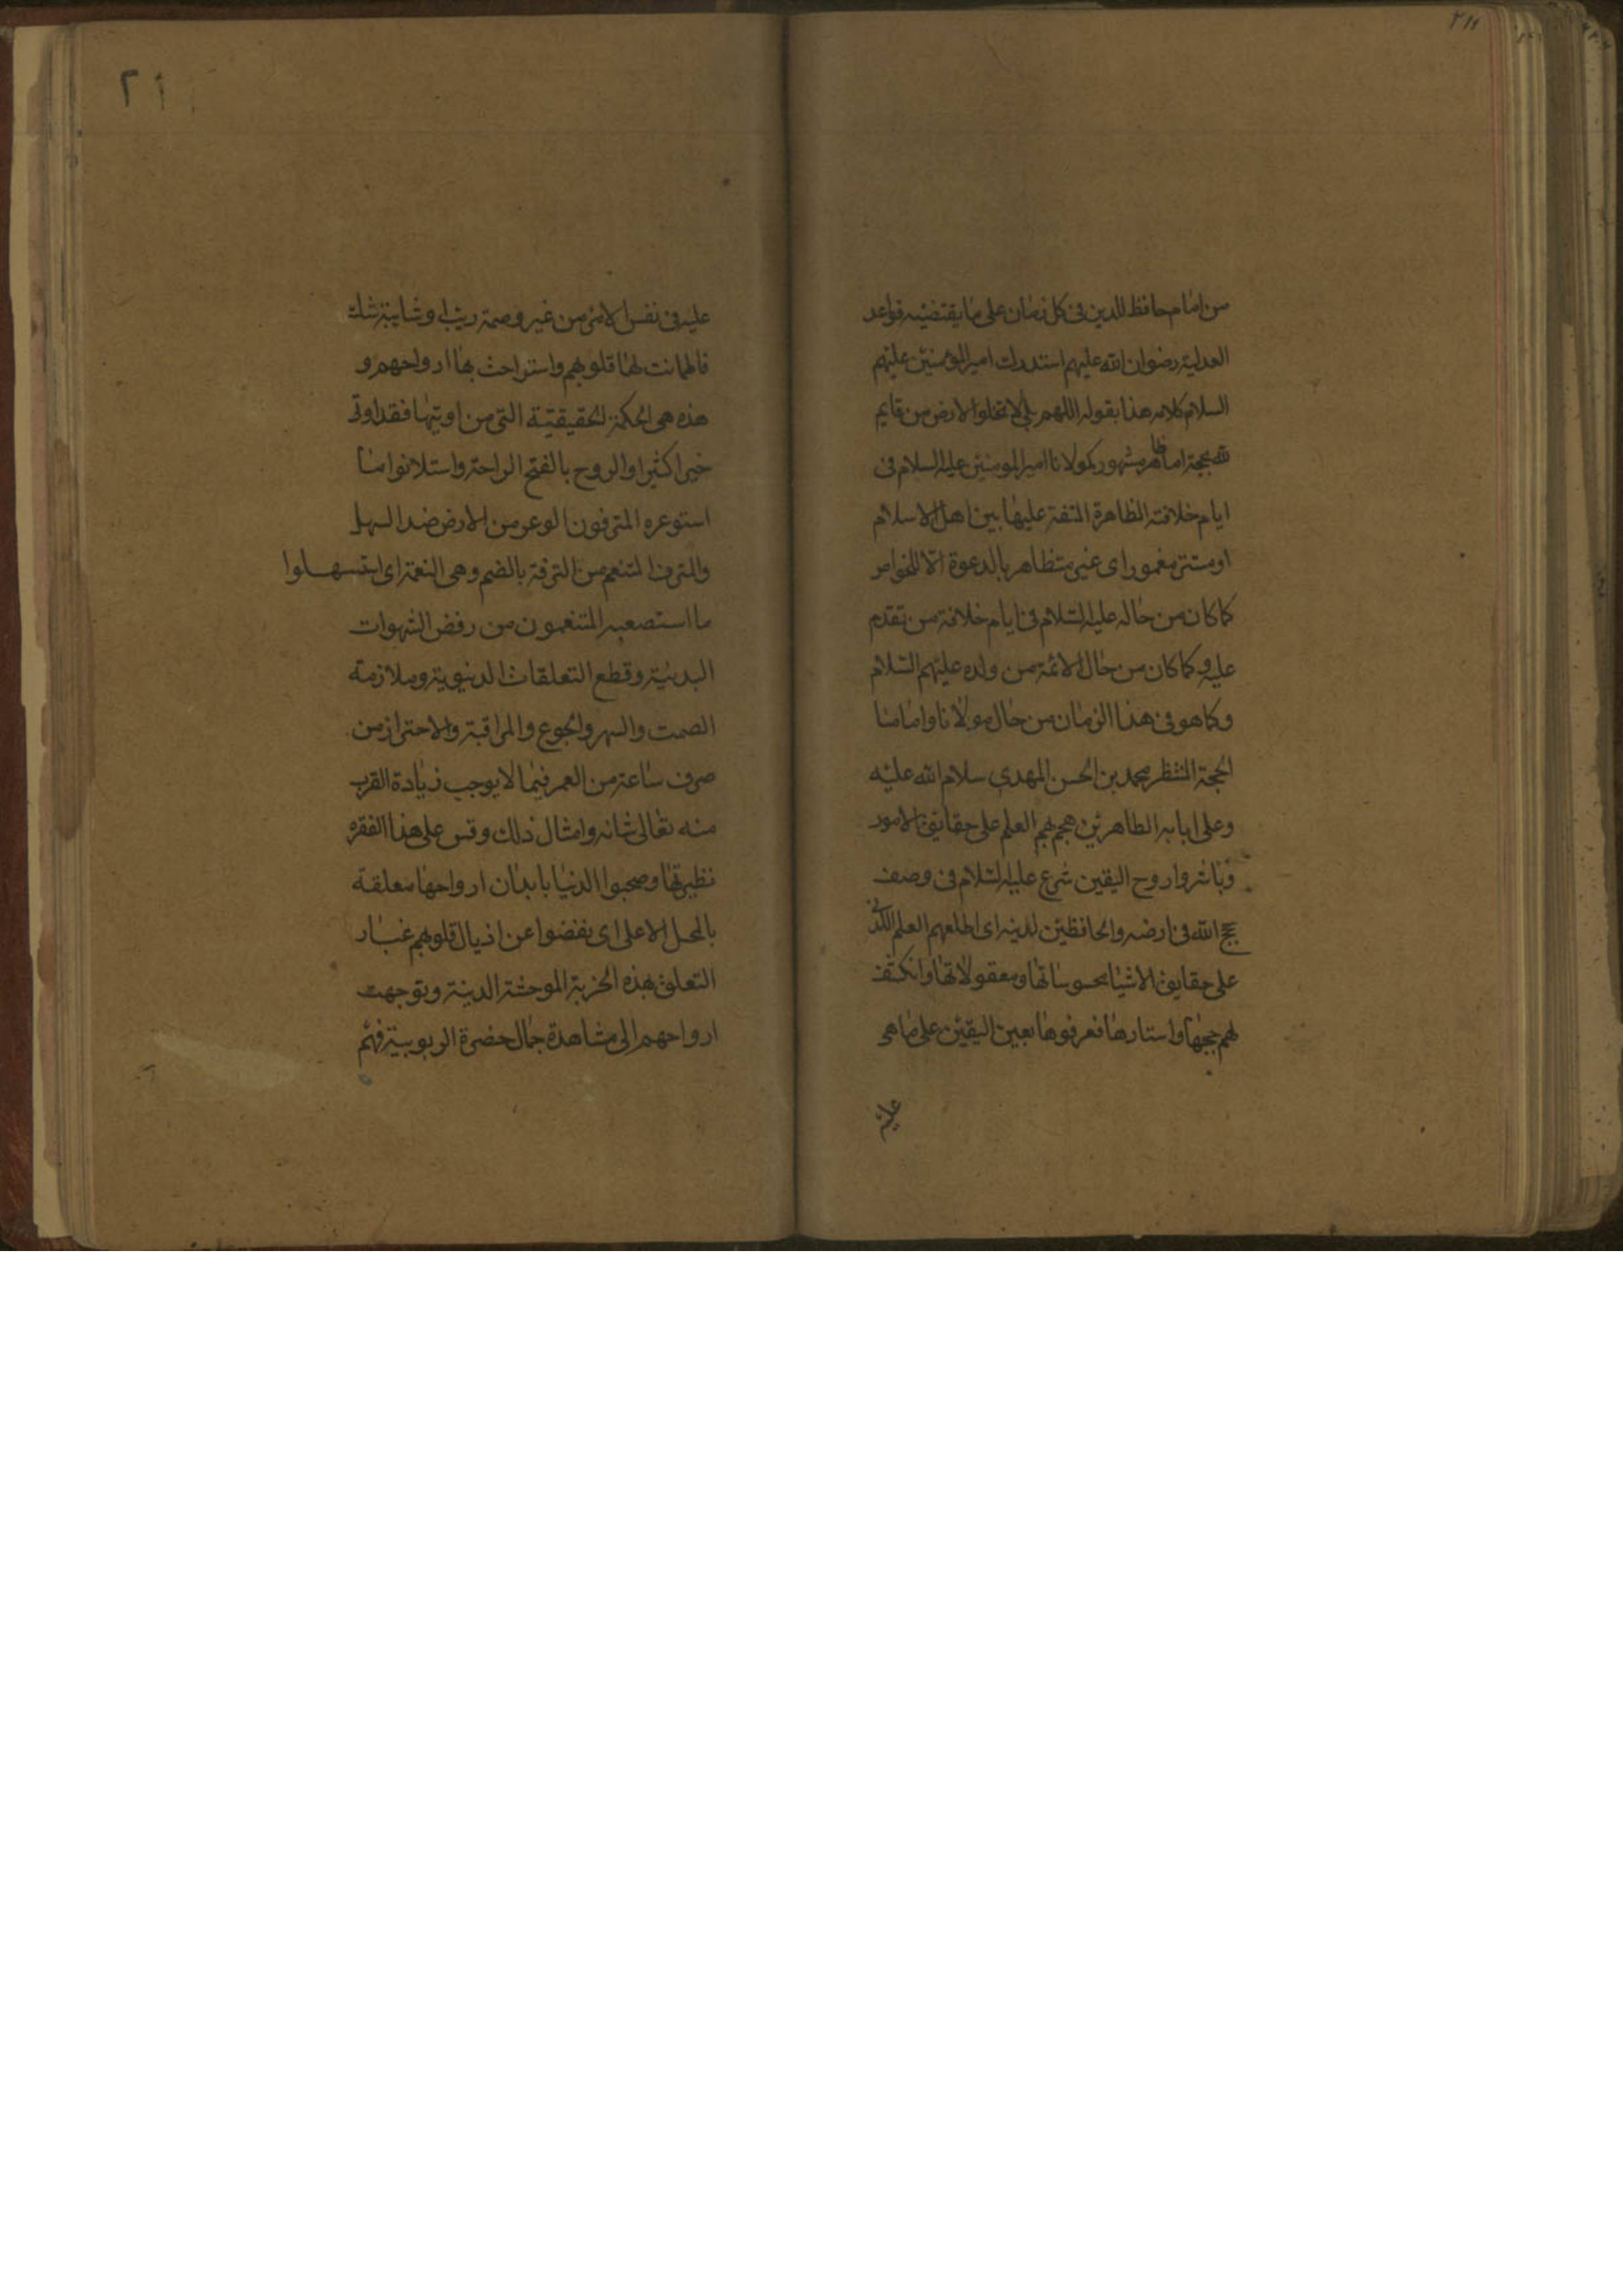 ٢١١
من امام حافظ للدين فى كل زمان على ما يقتضيه قواعد
العدلية رضوان الله عليهم استدرك امير المؤمنين عليهم
السلام كلامه هذا بقوله اللهم بلى لا تخلوا الارض من قايم
لله بحجة اما ظاهر مشهور كمولانا امير المومنين عليه السلام فى
ايام خلافته الظاهرة المتفق عليها بين اهل الاسلام
او مستتر مغمور اى غير متظاهر بالدعوة الا للخواص
كما كان من حاله عليه السلام فى ايام خلافة من تقدم
عليه وكما كان من حال الائمة من ولده عليهم السلام
وكما هو فى هذا الزمان من حال مولانا وامامنا
الحجة المنتظر محمد بن الحسن المهدى سلام الله عليه
وعلى ابايه الطاهرين هجم بهم العلم على حقايق الامور
وباشروا روح اليقين شرع عليه السلام فى وصف
حجج الله فى ارضه والحافظين لدينه اى اطلعهم العلم اللدنى
على حقايق الاشيا محسوساتها ومعقولاتها وانكشف
لهم حجبها واستارها فعرفوها بعين اليقين على ما هى
عليه
٢١١
عليه فى نفس الامر من غير وصمة ريب او شايبة شك
فاطمانت لها قلوبهم واستراحت بها ارواحهم و
هذه هى الحكمة الحقيقية التى من اوتيها فقد اوتى
خيرا كثيرا والروح بالفتح الراحة واستلانوا ما
استوعره المترفون الوعر من الارض ضد السهل
والمترف المتنعم من الترفة بالضم وهى النعمة اى استسهلوا
ما استصعبه المتنعمون من رفض الشهوات
البدنية وقطع التعلقات الدنيوية وملازمة
الصمت والسهر والجوع والمراقبة والاحتراز من
صرف ساعة من العمر فيما لا يوجب زيادة القرب
منه تعالى شانه وامثال ذلك وقس على هذا الفقره
نظيرتها وصحبوا الدنيا بابدان ارواحها معلقة
بالمحل الاعلى اى نفضوا عن اذيال قلوبهم غبار
التعلق بهذه الخربة الموحشة الدنية وتوجهت
ارواحهم الى مشاهدة جمال حضرة الربوبية فهم